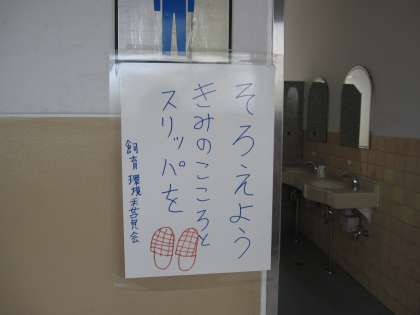 そろえよう
きみのこころと
スリッパを
飼育 環境委員会